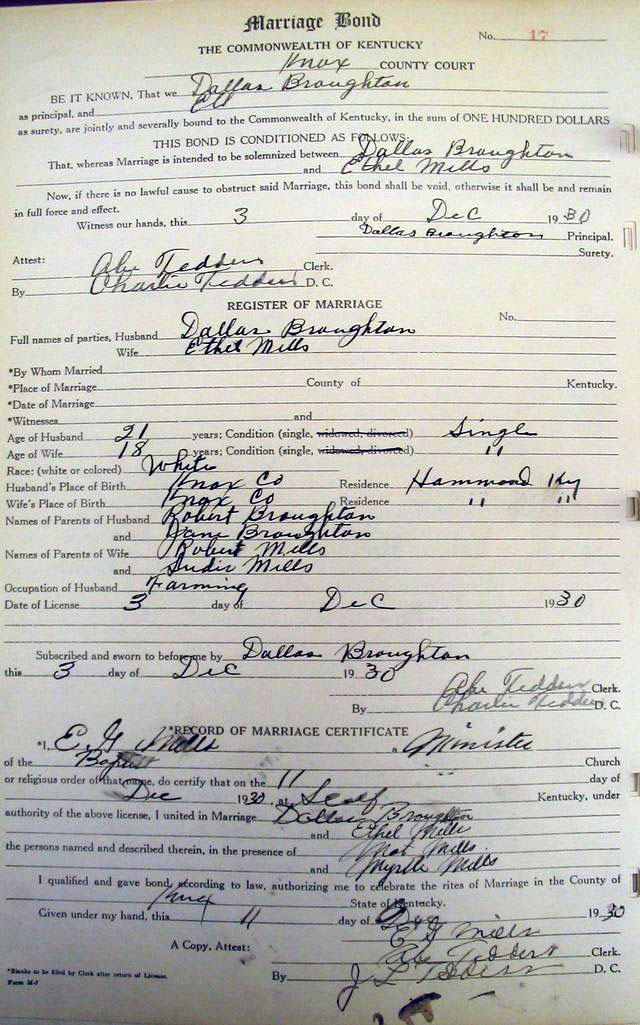 Marriage Bond
No. 17
THE COMMONWEALTH OF KENTUCKY
Knox COUNTY COURT
BE IT KNOWN, That we Dallas Broughton
as principal, and
as surety, are jointly and severally bound to the Commonwealth of Kentucky, in the sum of ONE HUNDRED DOLLARS
THIS BOND IS CONDITIONED AS FOLLOWS:
That, whereas Marriage is intended to be solemnized between Dallas Broughton
and Ethel Mills
Now, if there is no lawful cause to obstruct said Marriage, this bond shall be void, otherwise it shall be and remain
in full force and effect.
Witness our hands, this 3 day of Dec 1930
Dallas Broughton Principal.
Surety.
Attest: Abe Tedders Clerk.
By Charlie Tedders D. C.
REGISTER OF MARRIAGE
No.
Full names of parties, Husband Dallas Broughton
Wife Ethel Mills
*By Whom Married
*Place of Marriage County of Kentucky.
*Date of Marriage
*Witnesses and
Age of Husband 21 years; Condition (single, widowed, divorced) Single
Age of Wife 18 years; Condition (single, widowed, divorced) "
Race: (white or colored) White
Husband's Place of Birth Knox Co Residence Hammond Ky
Wife's Place of Birth Knox Co Residence " "
Names of Parents of Husband Robert Broughton
and Jane Broughton
Names of Parents of Wife Robert Mills
and Sudie Mills
Occupation of Husband Farming
Date of License 3 day of Dec 1930
Subscribed and sworn to before me by Dallas Broughton
this 3 day of Dec 1930
Abe Tedders Clerk.
By Charlie Tedders D. C.
*RECORD OF MARRIAGE CERTIFICATE
*I, E. G. Mills a Minister
of the Baptist Church
or religious order of that name, do certify that on the 11 day of
Dec 1930, at Scalf Kentucky, under
authority of the above license, I united in Marriage Dallas Broughton
and Ethel Mills
the persons named and described therein, in the presence of Mat Mills
and Myrtle Mills
I qualified and gave bond, according to law, authorizing me to celebrate the rites of Marriage in the County of
Knox State of Kentucky.
Given under my hand, this 11 day of Dec 1930
E G Mills
A Copy, Attest: Abe Tedders Clerk.
By J L Tedders D. C.
*Blanks to be filled by Clerk after return of License.
Form M-1